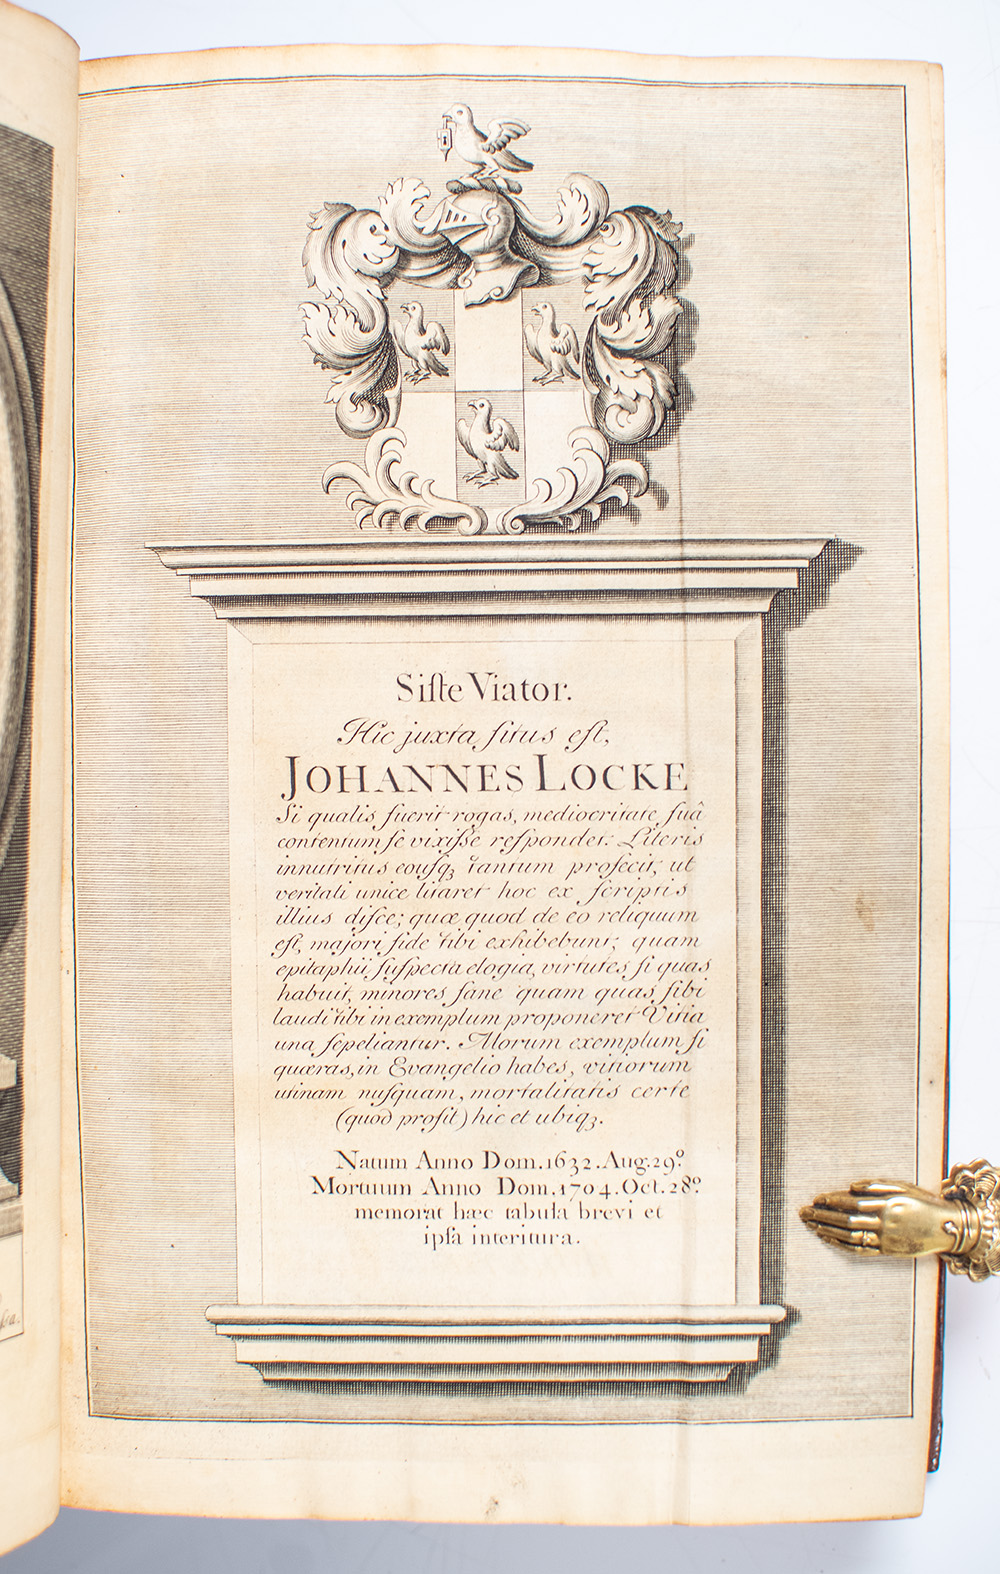 Siſte Viator.
Hic juxta ſitus eſt,
JOHANNES LOCKE
Si qualis fuerit rogas, mediocritate ſuâ
contentum ſe vixiſſe reſpondet. Literis
innutritus eouſqȝ tantum profecit, ut
veritati unice litaret hoc ex ſcriptis
illius diſce; quæ quod de eo reliquum
eſt, majori fide tibi exhibebunt, quam
epitaphii ſuſpecta elogia, virtutes ſi quas
habuit, minores ſane quam quas ſibi
laudi tibi in exemplum proponeret Vitia
una ſepeliantur. Morum exemplum ſi
quæras, in Evangelio habes, vitiorum
utinam nuſquam, mortalitatis certe
(quod proſit) hic et ubiqȝ.
Natum Anno Dom. 1632. Aug. 29º.
Mortuum Anno Dom. 1704. Oct. 28º.
memorat hæc tabula brevi et
ipſa interitura.